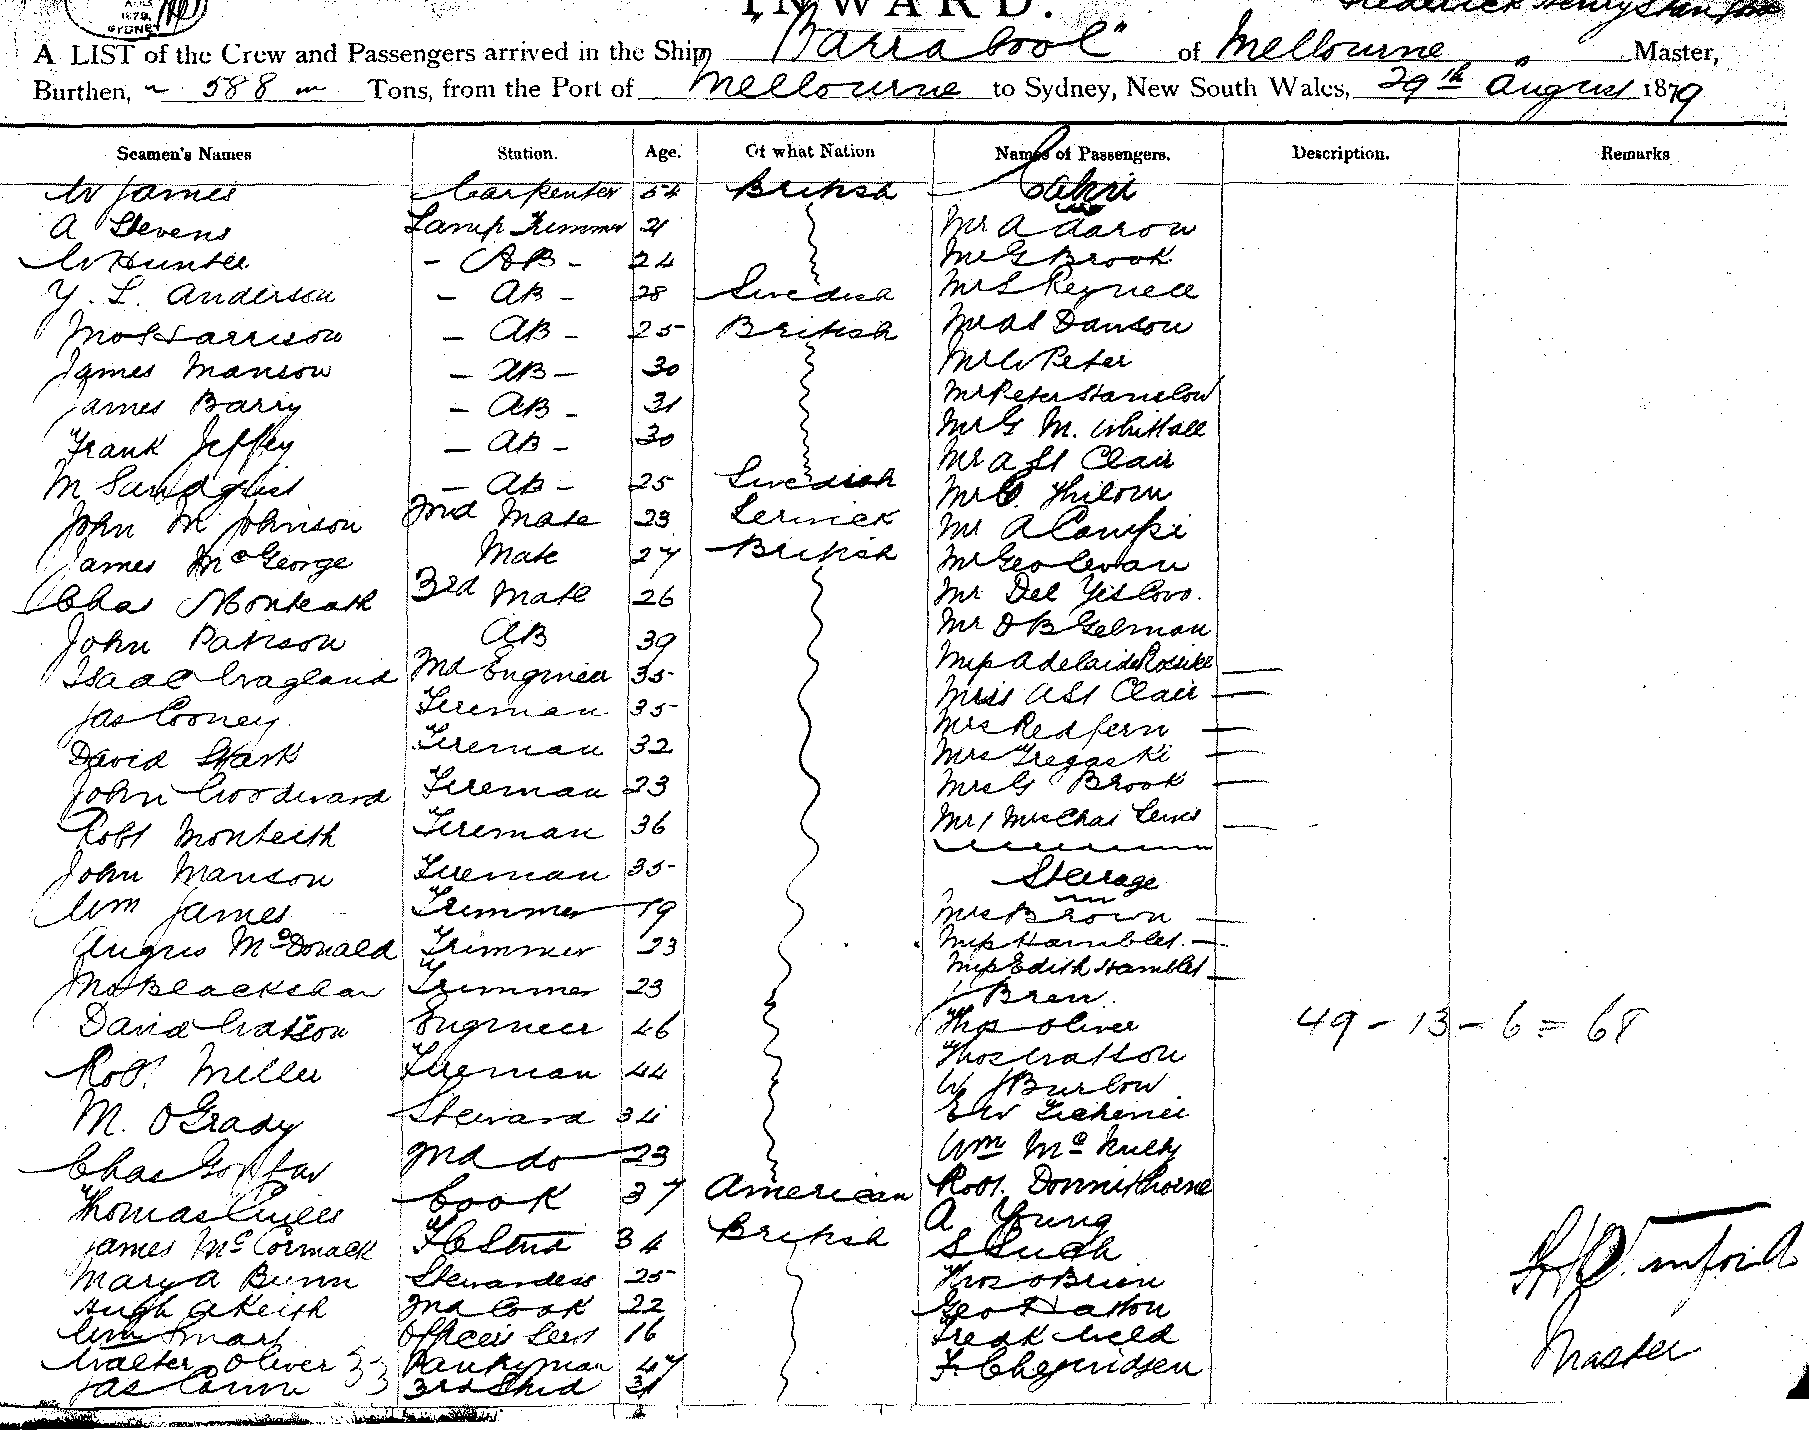 INWARD.
Frederick Henry
A LIST of the Crew and Passengers arrived in the Ship "Barrabool" of Melbourne Master,
Burthen, 588 Tons, from the Port of Melbourne to Sydney, New South Wales, 29th August 1879
Seamen's Names Station. Age. Of what Nation Names of Passengers. Description. Remarks
W James Carpenter 54 British Cabin
A Stevens Lamp Trimmer 21 Mr A Aaron
W Hunter - AB - 24 Mr G Brook
Y. L. Anderson - AB - 28 Swedish Mr S Reynell
Jno Harrison - AB - 25 British Mr Al Danson
James Manson - AB - 30 Mr W Peter
James Barry - AB - 31 Mr Peter Stanislow
Frank Jeffey - AB - 30 Mr G M. Whittall
M Sundquist - AB - 25 Swedish Mr A St Clair
John M Johnson 2nd Mate 23 Lerwick Mr
James McGeorge Mate 27 British Mr A Campi
Chas Monteath 3rd Mate 26 Mr Geo Cowan
John Patison AB 39 Mr Del
Isaac Wagland 2nd Engineer 35 Mr D B Gelman
Jas Cooney Fireman 35 Miss Adelaide
David Stark Fireman 32 Miss A St Clair —
John Woodward Fireman 23 Mrs Redfern —
Robt Monteith Fireman 36 Mrs Greggaski —
John Manson Fireman 35 Mrs G Brook —
Wm James Trimmer 19 Mr & Mrs Chas Lewis —
Angus McDonald Trimmer 23 Steerage
Jno Blackshaw Trimmer 23 Mrs Brown —
David Watson Engineer 46 Miss Hamblet —
Robt. Miller Fireman 44 Miss Edith Hamblet —
M. O'Grady Steward 34 J Bren
Chas 2nd do 23 Thos Oliver
Thomas Cook 37 American Thos Watson
James McCormack F C Stwd 34 British W J Burlow
Mary A Bunn Stewardess 25 E W
Hugh A Keith 2nd Cook 22 Wm McNulty
Wm Smart Officers Servt 16 Robt. Donnithorne
Walter Oliver Pantryman 47 A Young
Jas Conn 33 3rd Stwd 31 S Such
Thos O'Brien
Geo Hatton
Fredk Weld
F.
49 - 13 - 6 = 68
Master